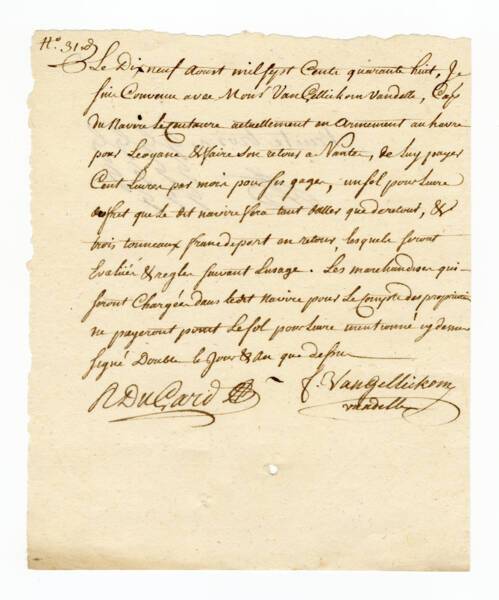 No. 31
Le Dix neuf aoust mil sept Cents quarante huit, Je
suis Convenu avec Monsr. Van Gellickom Vandelle, Cap.
du Navire Le Centaure actuellement en Armement au havre
pour Leogane & faire son retour a Nantes, de luy payer
Cent Livres par mois pour ses gages, un sol pour Livre
du fret que Le dit navire fera tant d'alles que de retour, &
trois tonneaux franc de port en retour, lesquels seront
Evalués & reglés suivant Lusage. Les marchandises qui
seront Chargées dans ledit Navire pour Le Compte des proprietaires
ne payeront point Le sol pour Livre mentionné cy dessus
signé Double le Jour & An que dessus
R DuGard
f. Van Gellickom
vandelle